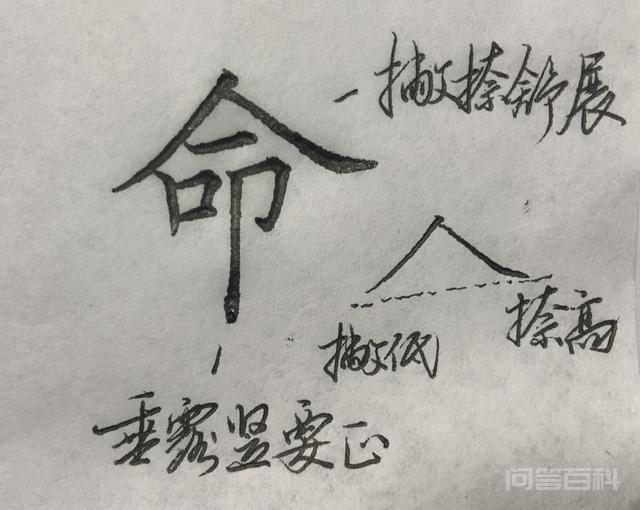 撇捺舒展
命
人
撇低
捺高
垂露竖要正
问答百科